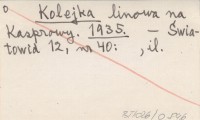 Kolejka linowa na
Kasprowy. 1935. — Świa-
towid 12, nr 40: , il.